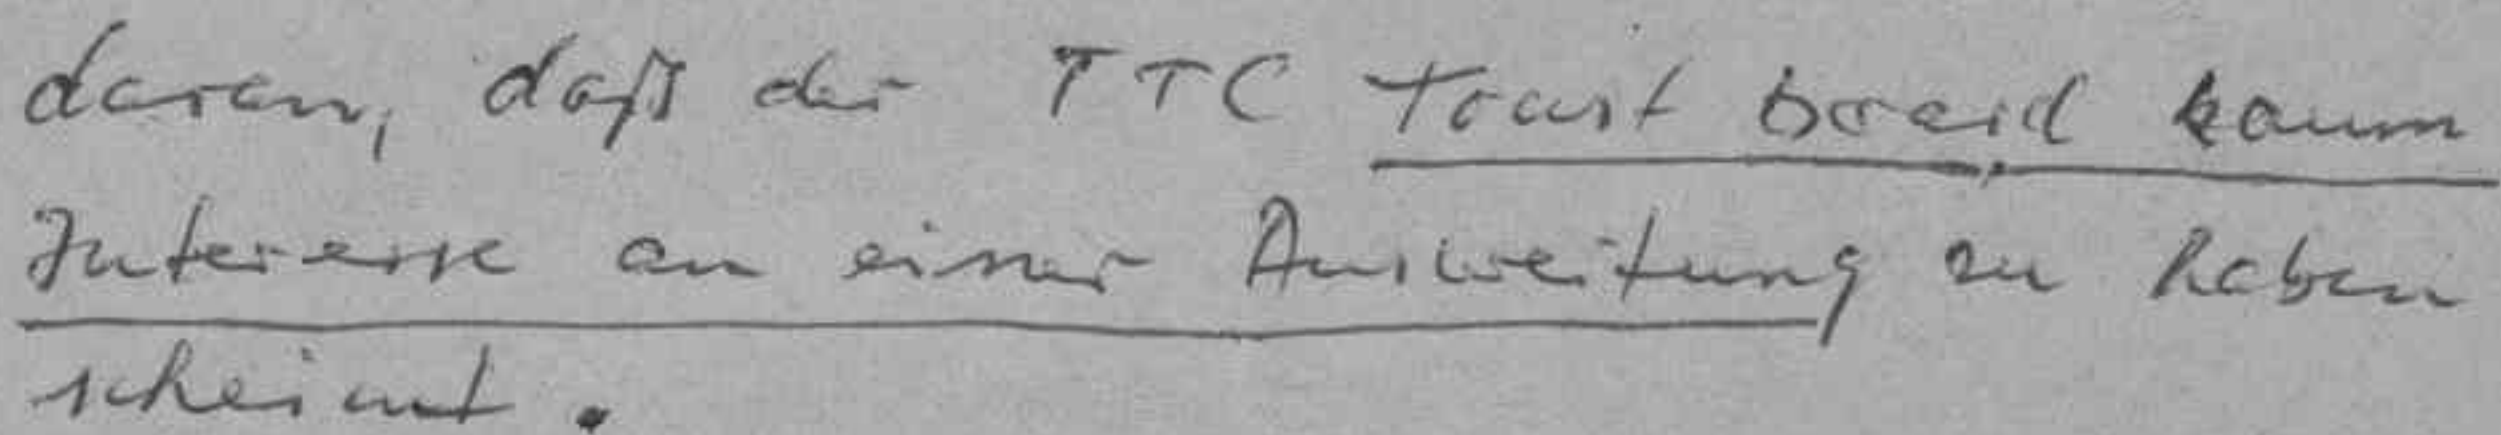 daran, daß der TTC Tourist board kaum
Interesse an einer Ausweitung zu haben
scheint.